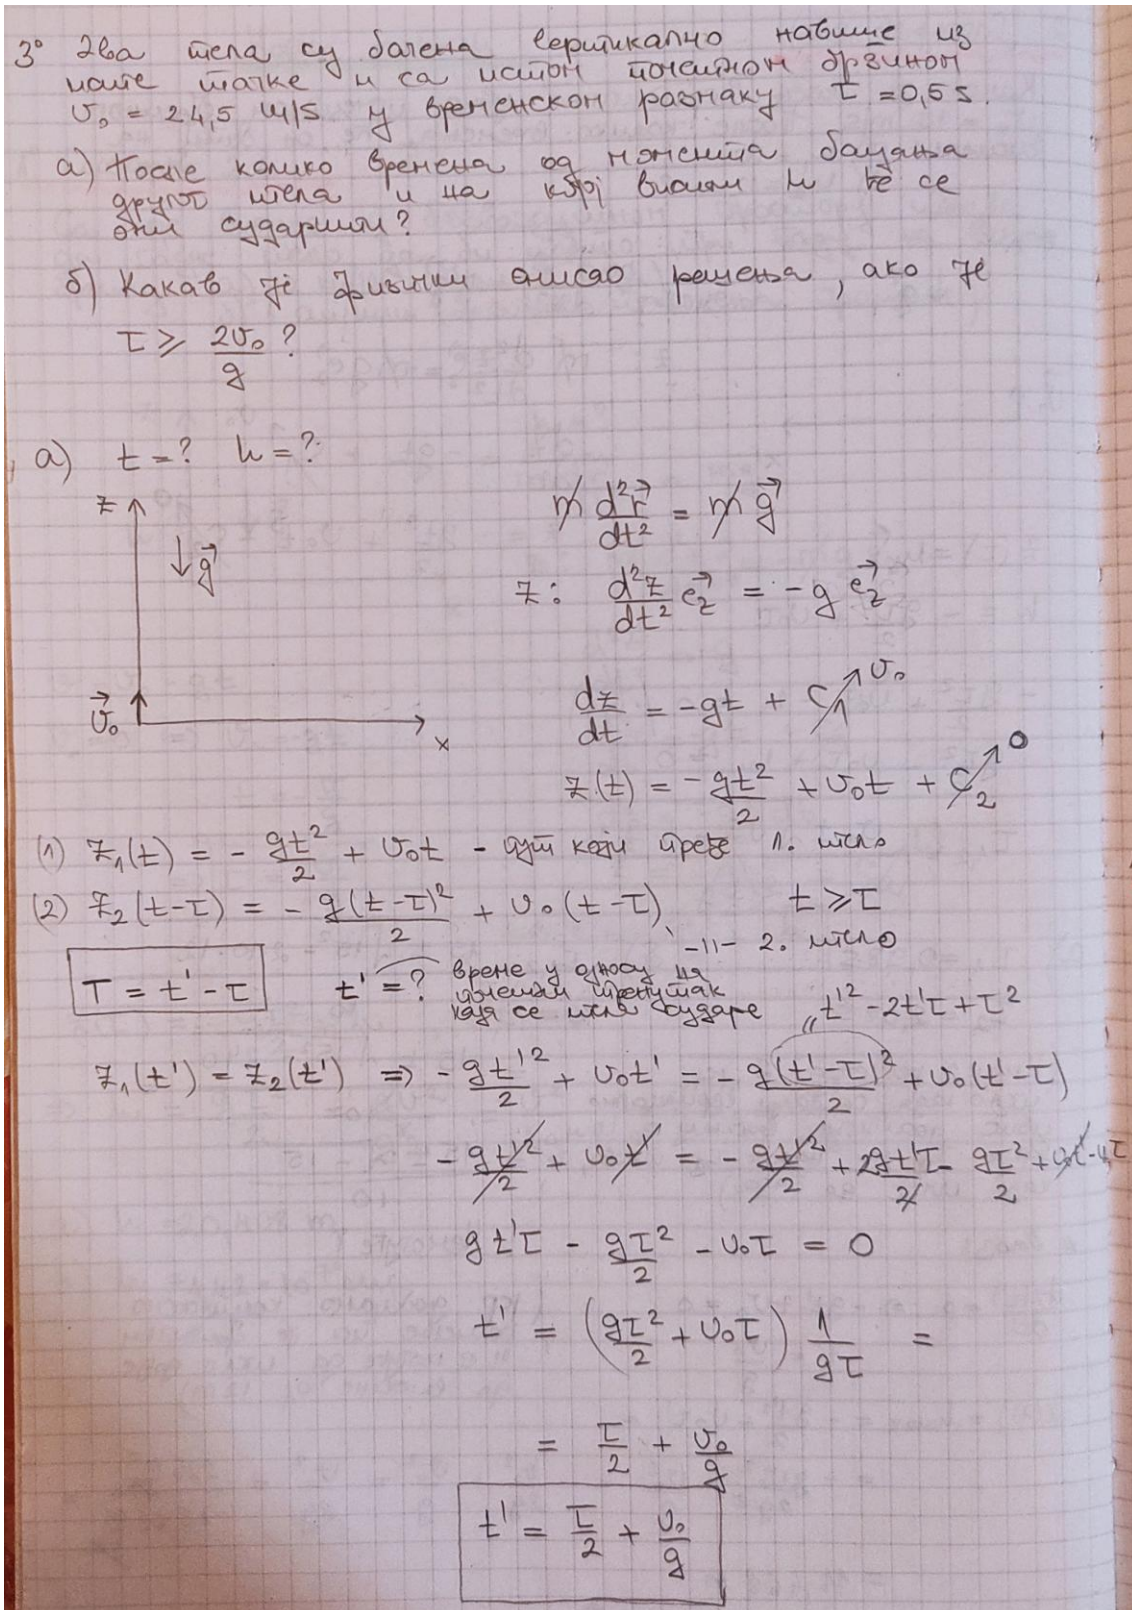 3° Два тела су бачена вертикално навише из
исте тачке и са истом почетном брзином
v₀ = 24,5 m/s у временском размаку τ = 0,5 s.
а) После колико времена од момента бацања
другог тела и на којој висини h ће се
они сударити?
б) Какав је физички смисао решења, ако је
τ ≥ 2v₀/g ?
а) t = ? h = ?
z
g⃗
v⃗₀
x
m d²r⃗/dt² = m g⃗
z: d²z/dt² e⃗z = -g e⃗z
dz/dt = -gt + C₁ ↗ v₀
z(t) = -gt²/2 + v₀t + C₂ ↗ 0
(1) z₁(t) = - gt²/2 + v₀t - пут који пређе 1. тело
(2) z₂(t-τ) = - g(t-τ)²/2 + v₀(t-τ) t ≥ τ
-11- 2. тело
T = t' - τ t' = ? време у односу на
почетни тренутак
када се тела сударе
t'² - 2t'τ + τ²
z₁(t') = z₂(t') ⇒ - gt'²/2 + v₀t' = - g(t'-τ)²/2 + v₀(t'-τ)
- gt'²/2 + v₀t' = - gt'²/2 + 2gt'τ/2 - gτ²/2 + v₀t' - v₀τ
gt'τ - gτ²/2 - v₀τ = 0
t' = (gτ²/2 + v₀τ) 1/gτ =
= τ/2 + v₀/g
t' = τ/2 + v₀/g